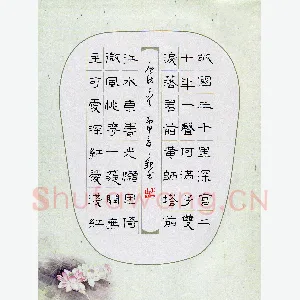 故國三千里深宮二
十年一聲何滿子雙
淚落君前黃師塔前
唐詩二首
江水東春光懶困倚
微風桃華一簇開無
主可愛深紅愛淺紅
ShuFaWang.CN